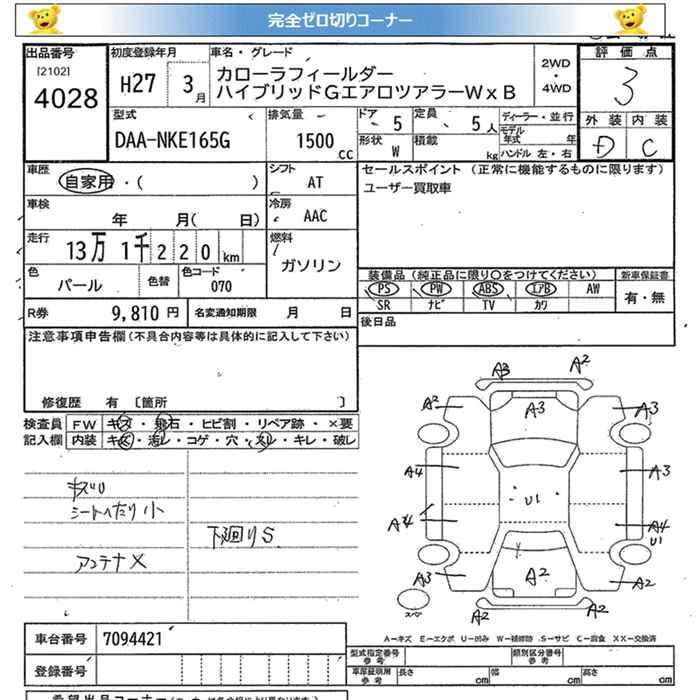 完全ゼロ切りコーナー
出品番号 初度登録年月 車名・グレード 2WD・4WD 評価点
[2102]
4028 H27 3月 カローラフィールダー 3
ハイブリッドGエアロツアラーW×B
外装 内装
型式 排気量 ドア 5 定員 5人 ディーラー・並行
DAA-NKE165G 1500cc モデル年式 年 D C
形状 W 積載 kg ハンドル 左・右
車歴 シフト セールスポイント(正常に機能するものに限ります)
自家用・( ) AT ユーザー買取車
車検 冷房
年 月( 日) AAC
走行 燃料
13万1千220km ガソリン
装備品(純正品に限り○をつけてください) 新車保証書
色 色替 色コード PS PW ABS エアB AW 有・無
パール 070 SR ナビ TV カワ
R券 9,810円 名変通知期限 月 日 後日品
注意事項申告欄(不具合内容等は具体的に記入して下さい)
修復歴 有〔箇所 〕
検査員 FW キズ・飛石・ヒビ割・リペア跡・×要
記入欄 内装 キズ・汚レ・コゲ・穴・スリ・キレ・破レ
シートヘたり小
下廻りS
アンテナX
A3 A2
A2 A3 A3
A4 A3
U1
A4 A4
U1
A3 A2 A2
A2 A2
スペア
A－キズ E－エクボ U－凹み W－補修跡 S－サビ C－腐食 XX－交換済
車台番号 7094421
型式指定番号 参考 類別区分番号 参考
登録番号
車庫証明用 参考 長さ 幅 高さ
希望出品コーナー